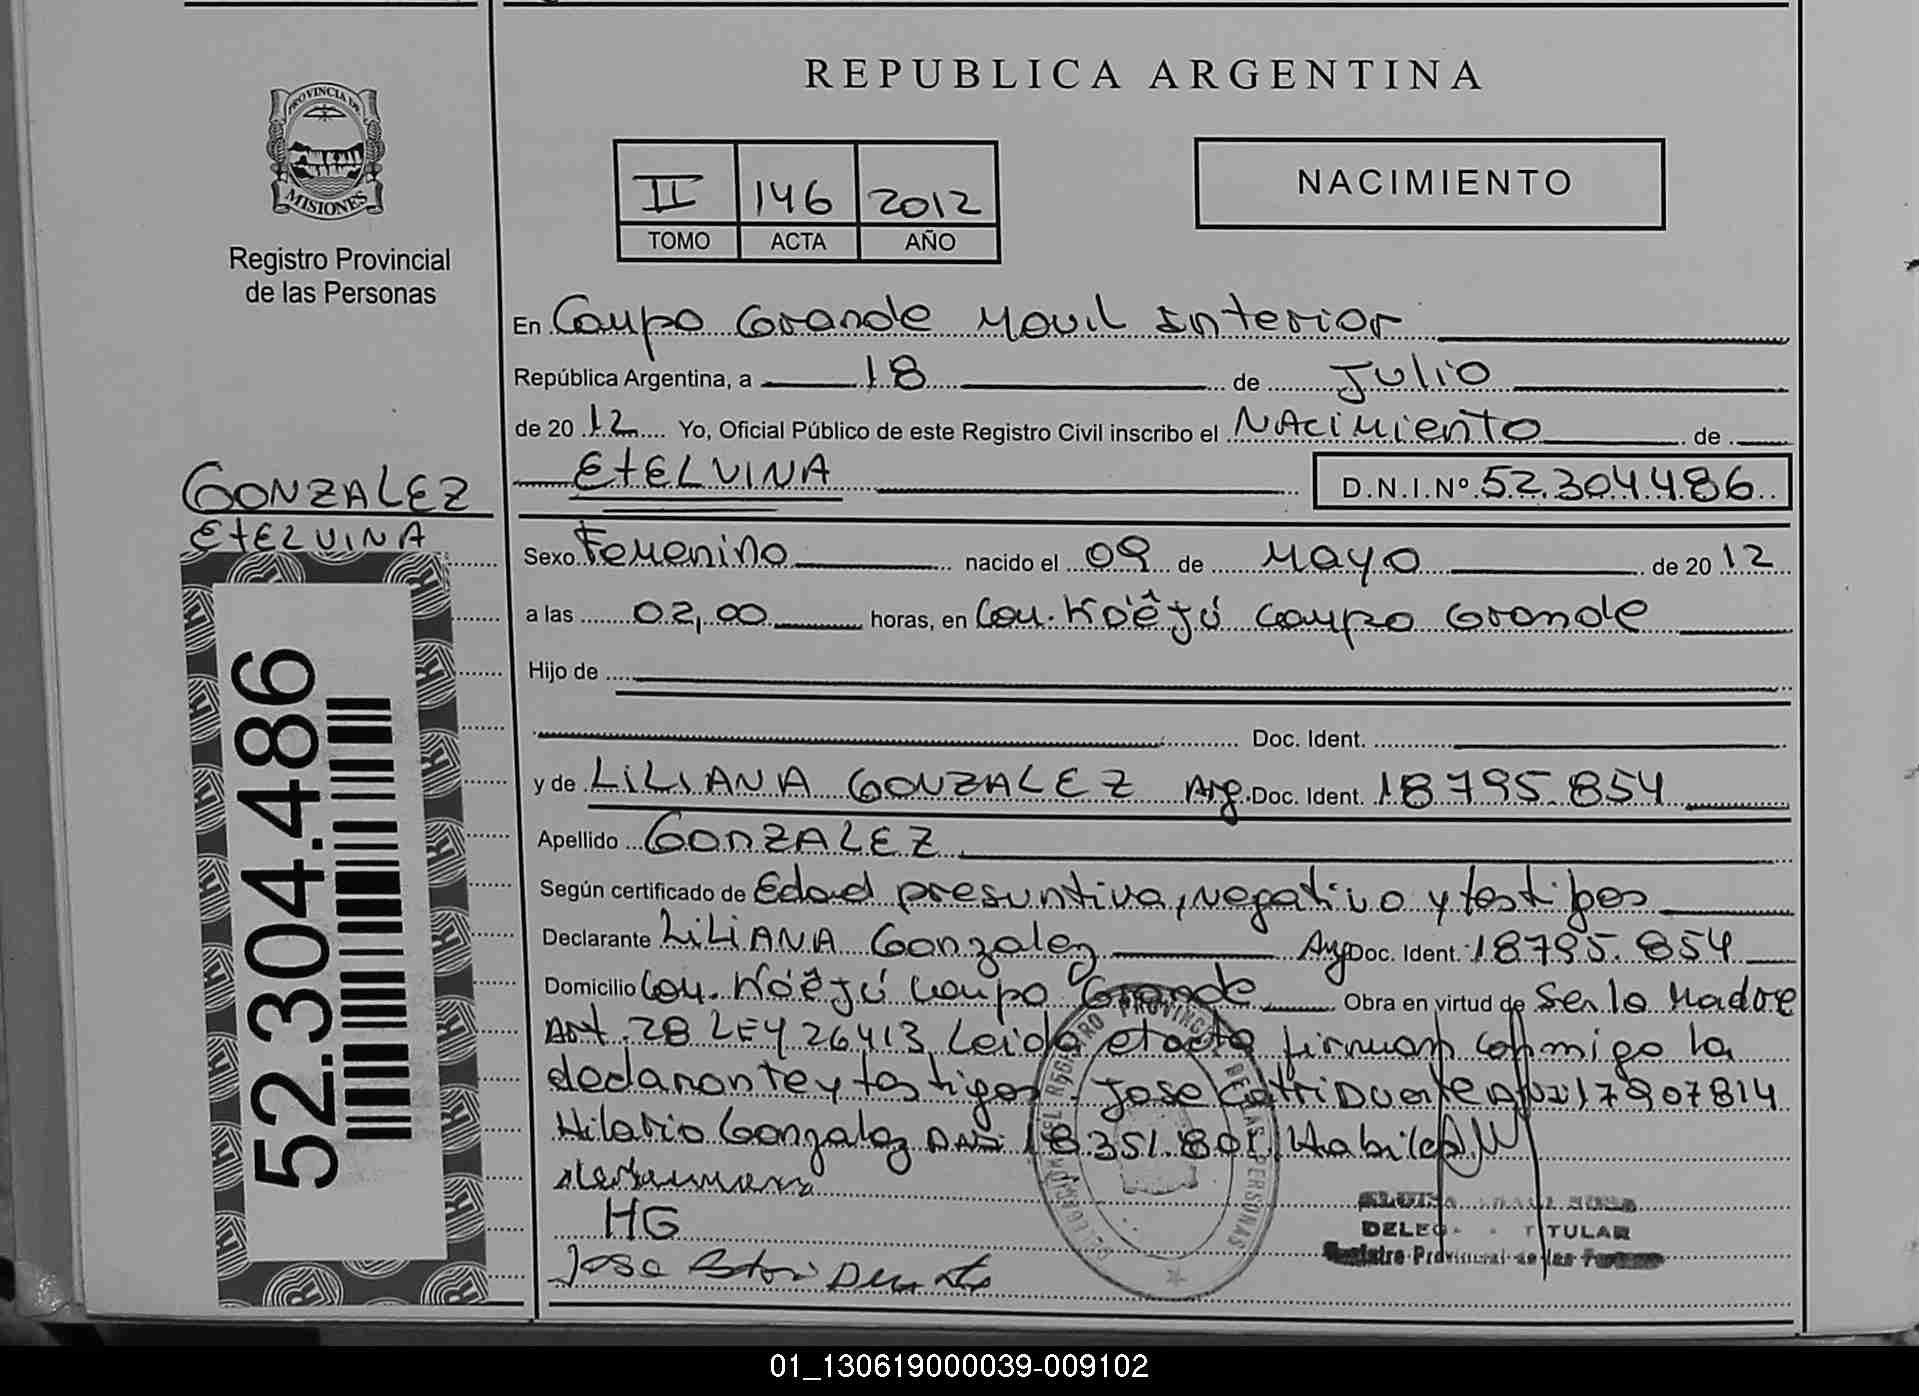 REPUBLICA ARGENTINA
PROVINCIA DE
MISIONES
Registro Provincial
de las Personas
II 146 2012
TOMO ACTA AÑO
NACIMIENTO
En Campo Grande Movil Interior
República Argentina, a 18 de Julio
de 2012 Yo, Oficial Público de este Registro Civil inscribo el NAcimiento de
EtELVINA D.N.I.Nº 52.304.486
GONZALEZ
EtELVINA
52.304.486
Sexo Femenino nacido el 09 de Mayo de 2012
a las 02,00 horas, en Com. Kóêjú Campo Grande
Hijo de
Doc. Ident.
y de LILIANA GONZALEZ Arg. Doc. Ident. 18795.854
Apellido GONZALEZ
Según certificado de Edad presuntiva, negativo y testigos
Declarante LILIANA Gonzalez Arg Doc. Ident. 18795.854
Domicilio Com. Kóêjú Campo Grande Obra en virtud de Ser la Madre
Art. 28 LEY 26413, Leida el acta firman conmigo la
declarante y testigos. Jose Duarte DNI 17907814
Hilario Gonzalez DNI 18351.801 Habiles
HG
Jose Duarte
DELEGACION DEL REGISTRO PROVINCIAL DE LAS PERSONAS
TITULAR
Registro Provincial de las Personas
01_130619000039-009102